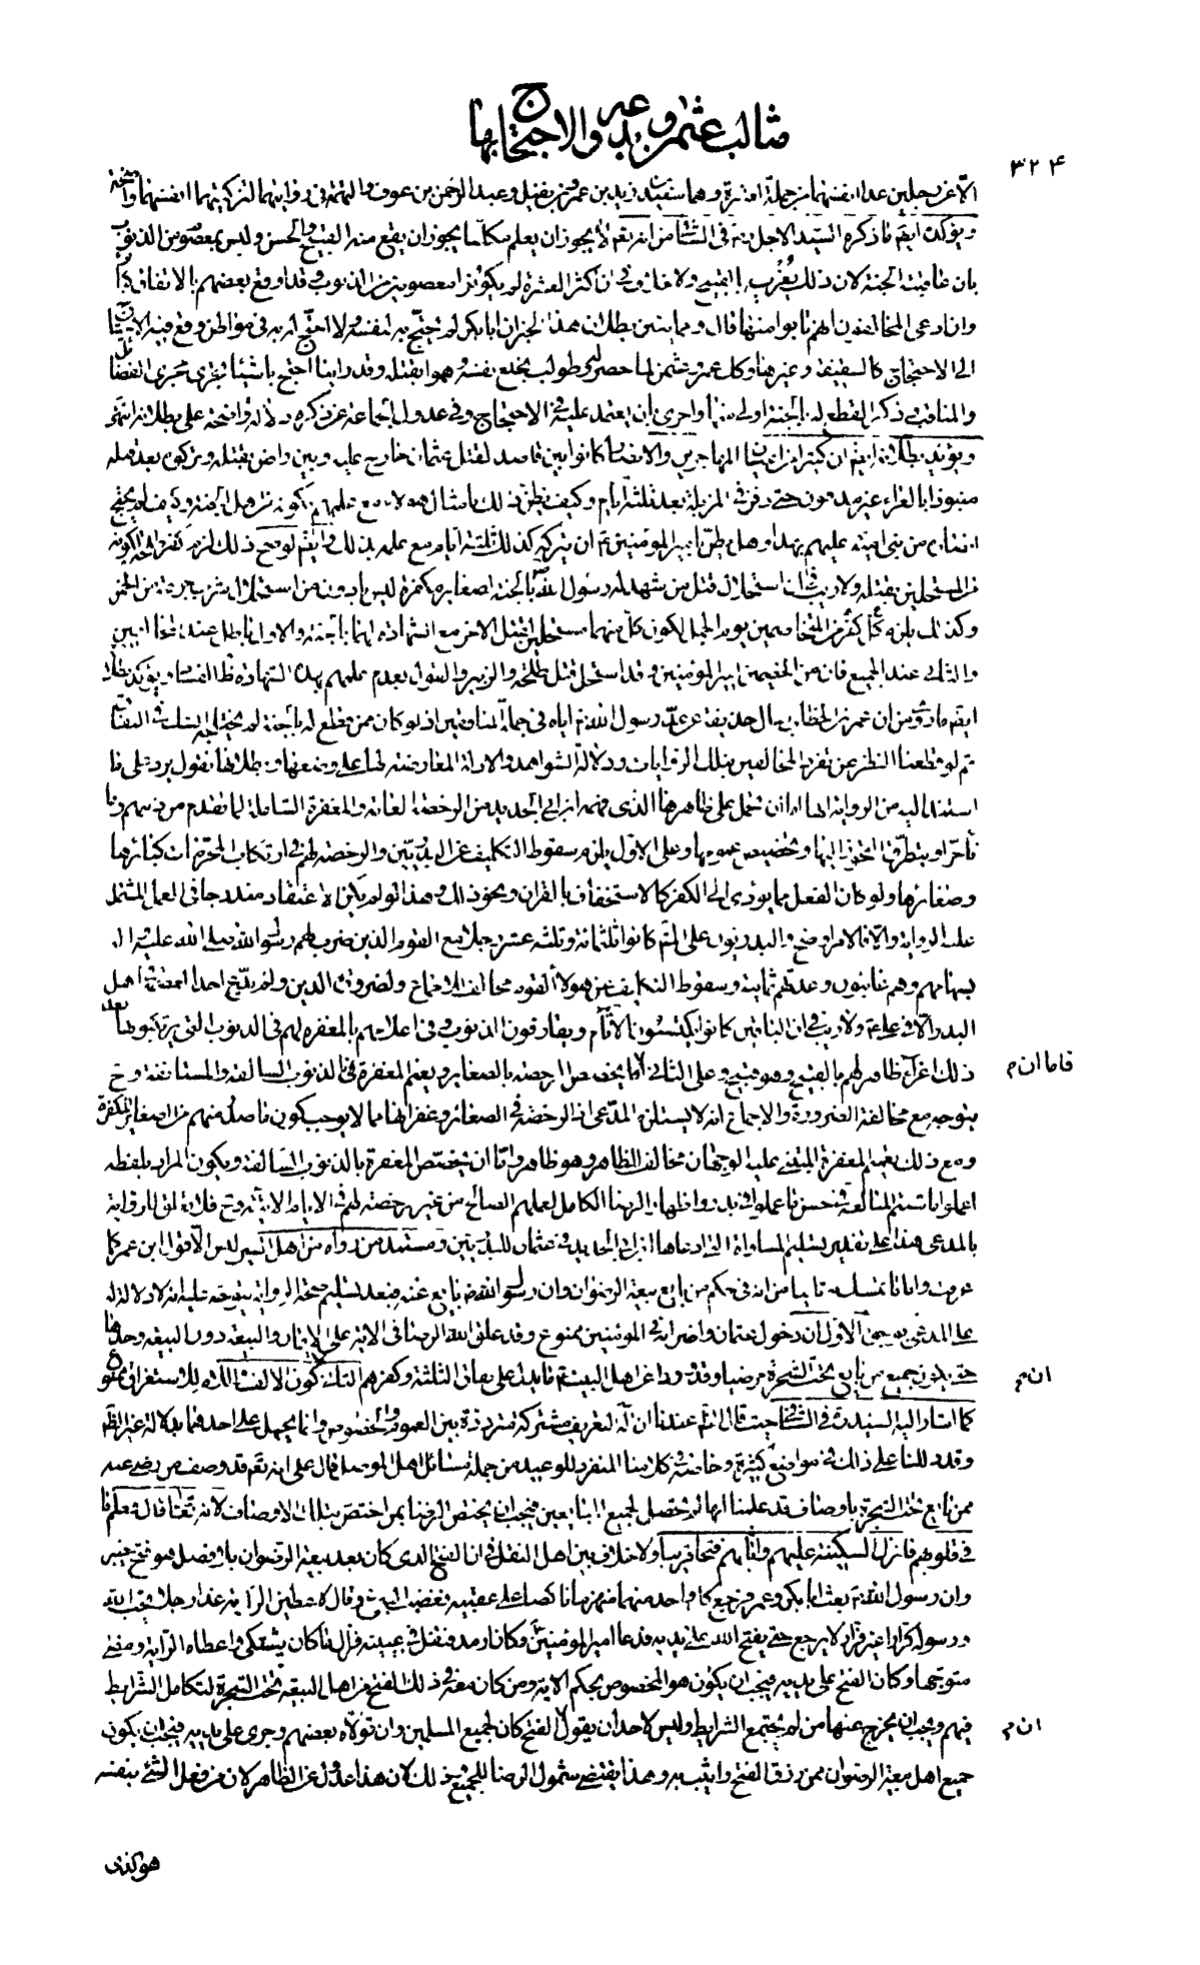 مثالب عثمن وبدعه والاحتجاج بها
٣٢٤
الا عن رجلين عدا انفسهما من جملة العشرة وهما سعيد بن زيد بن عمرو بن نفيل وعبد الرحمن بن عوف والتهمة في روايتهما لتزكيتهما انفسهما واضحة
ويؤكده ايضا ما ذكره السيد الاجل ره في الشافي من انه تعالى لا يجوز ان يعلم مكلفا يجوز ان يقع منه القبيح والحسن وليس بمعصوم من الذنوب
بان عاقبته الجنة لان ذلك يغريه بالقبيح ولا خلاف في ان اكثر العشرة لم يكونوا معصومين من الذنوب وقد اوقع بعضهم بالاتفاق كبائر
وان ادعى المخالفون انهم تابوا منها قال ومما يبين بطلان هذا الخبر ان ابا بكر لم يحتج به لنفسه ولا احتج له به في مواطن وقع فيها الاحتياج
الى الاحتجاج كالسقيفة وغيرها وكذلك عمر وعثمن لما حصر وطولب بخلع نفسه وهموا بقتله وقد راينا احتج باشياء تجري مجرى الفضائل
والمناقب وذكر القطع له بالجنة اولى منها واحرى ان يعتمد عليه في الاحتجاج وفي عدول الجماعة عن ذكره دلالة واضحة على بطلانه انتهى
ويؤيد بطلانه ايضا ان كثيرا من اعيان المهاجرين والانصار كانوا بين قاصد لقتل عثمان خارج عليه وبين راض بقتله وتركوه بعد قتله
منبوذا بالعراء غير مدفون حتى دفن في المزبلة بعد ثلثة ايام وكيف يظن ذلك بامثال هولاء مع علمهم بكونه من اهل الجنة وكيف لم يحتج
انصاره من بني امية عليهم بهذا وهل يظن بامير المؤمنين ع ان يتركه كذلك ثلثة ايام مع علمه بذلك وايضا لو صح ذلك لزم كفر طلحة لكونه
من المستحلين بقتله ولا ريب في ان استحلال قتل من شهد له رسول الله بالجنة اصغاره مكفرة ليس بادون من استحلال شرب جرعة من الخمر
وكذلك يلزم كفر كل من المتخاصمين يوم الجمل لكون كل منهما مستحلين لقتل الاخر مع الشهادة لهما بالجنة والاول باطل عند المخالفين
والثاني عند الجميع فان من المخاصمين امير المؤمنين ع وقد استحل قتل طلحة والزبير والقول بعدم علمهم بهذه الشهادة ظاهر الفساد ويؤكد بطلانه
ايضا ما روي من ان عمر بن الخطاب سال حذيفة عن عد رسول الله ص اياه في جملة المنافقين اذ لو كان ممن قطع له بالجنة لم يختلجه الشك في النفاق
ثم لو قطعنا النظر عن تفرد المخالفين بتلك الروايات ودلالة الشواهد والادلة المعارضة لها على وضعها وبطلانها نقول يرد على ما
استند اليه من الرواية انها اما ان تحمل على ظاهرها الذي فهمه ابن ابي الحديد من الرخصة العامة والمغفرة الشاملة لما تقدم من ذنبهم وما
تاخر او يتطرق التجوز اليها وتخصيص عمومها وعلى الاول يلزم سقوط التكليف عن البدريين والرخصة لهم في ارتكاب المحرمات كبائرها
وصغائرها ولو كان الفعل مما يؤدي الى الكفر كالاستخفاف بالقران ونحو ذلك وهذا لو لم يكن الاعتقاد مندرجا في العمل المشتمل
عليه الرواية والا فالامر اوضح والبدريون على المشهور كانوا ثلثمائة وثلثة عشر رجلا مع القوم الذين ضرب لهم رسول الله صلى الله عليه واله
بسهامهم وهم غائبون وعدتهم ثمانية وسقوط التكليف عن هولاء القوم مخالف للاجماع ولضرورة الدين ولم يدع احد العصمة في اهل
البدر الا في علي ع ولا ريب في ان الباقين كانوا يكتسبون الاثام ويقارفون الذنوب وفي اعلامهم بالمغفرة لهم في الذنوب التي يرتكبونها بعد
ذلك اغراء ظاهر لهم بالقبيح وهو قبيح وعلى الثاني اما يخصص الرخصة بالصغاير ويعمم المغفرة في الذنوب السالفة والمستانفة وح
فاما ان م
يتوجه مع مخالفته للضرورة والاجماع انه لا يستلزم المدعى اذ الرخصة في الصغائر وغفرانها مما لا يوجب كون ما صدر منهم من الصغائر المكفرة
ومع ذلك تعميم المغفرة المبتني عليه الوجهان مخالف للظاهر وهو ظاهر واما ان يختص المغفرة بالذنوب السالفة ويكون المراد بلفظة
اعملوا ما شئتم المبالغة في حسن ما عملوا في بدر واظهار الرضا الكامل لعملهم الصالح من غير رخصة لهم في الايام الاتية وح فلا تعلق للرواية
بالمدعى هذا على تقدير تسليم المساواة التي ادعاها ابن ابي الحديد في عثمان للبدريين ومستند من رواه من اهل السير ليس الا قول ابن عمر كما
عرفت واما ما تمسك به ثانيا من انه في حكم من بايع بيعة الرضوان وان رسول الله ص بايع عنه فبعد تسليم صحة الرواية يتوجه عليه انه لا دلالة له
على المدعى بوجوه الاول ان دخول عثمان واضرابه في المؤمنين ممنوع وقد علق الله الرضا في الاية على الايمان والبيعة دون البيعة وحدها
حتى يكون جميع من بايع تحت الشجرة مرضيا وقد ورد عن اهل البيت ع ما يدل على نفاق الثلثة وكفرهم الثاني كون الالف واللام للاستغراق ممنوع
ان م
كما اشار اليه السيد ره في الشافي حيث قال الظاهر عندنا ان الة التعريف مشتركة مترددة بين العموم والخصوص وانما يحمل على احدهما بدلالة غير الظاهر
وقد دللنا على ذلك في مواضع كثيرة وخاصة في كلامنا المنفرد للوعيد من جملة مسائل اهل الموصل قال على انه تعالى قد وصف من رضي عنه
ممن بايع تحت الشجرة باوصاف قد علمنا انها لم تحصل لجميع المبايعين فيجب ان يختص الرضا بمن اختص بتلك الاوصاف لانه تعالى قال فعلم ما
في قلوبهم فانزل السكينة عليهم واثابهم فتحا قريبا ولا خلاف بين اهل النقل في ان الفتح الذي كان بعد بيعة الرضوان بلا فصل هو فتح خيبر
وان رسول الله ص بعث ابا بكر وعمر فرجع كل واحد منهما منهزما ناكصا على عقبيه فغضب النبي ص وقال لاعطين الراية غدا رجلا يحب الله
ورسوله كرارا غير فرار لا يرجع حتى يفتح الله على يديه فدعا امير المؤمنين ع وكان ارمد فتفل في عينيه فزال ما كان يشتكي واعطاه الراية ومضى
متوجها وكان الفتح على يديه فيجب ان يكون هو المخصوص بحكم الاية ومن كان معه في ذلك الفتح من اهل البيعة تحت الشجرة لتكامل الشرايط
فيهم ويجب ان يخرج عنها من لم يجتمع الشرايط وليس لاحد ان يقول الفتح كان لجميع المسلمين وان تولاه بعضهم وجرى على يديه فيجب بكون
ان م
جميع اهل بيعة الرضوان ممن رزق الفتح واثيب به وهذا يقتضي شمول الرضا للجميع وذلك لان هذا عدول عن الظاهر لان من فعل الشئ بنفسه
هو الذي